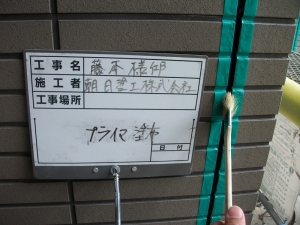 工事名 藤本様邸
施工者 朝日塗工株式会社
工事場所
プライマ塗布
日付